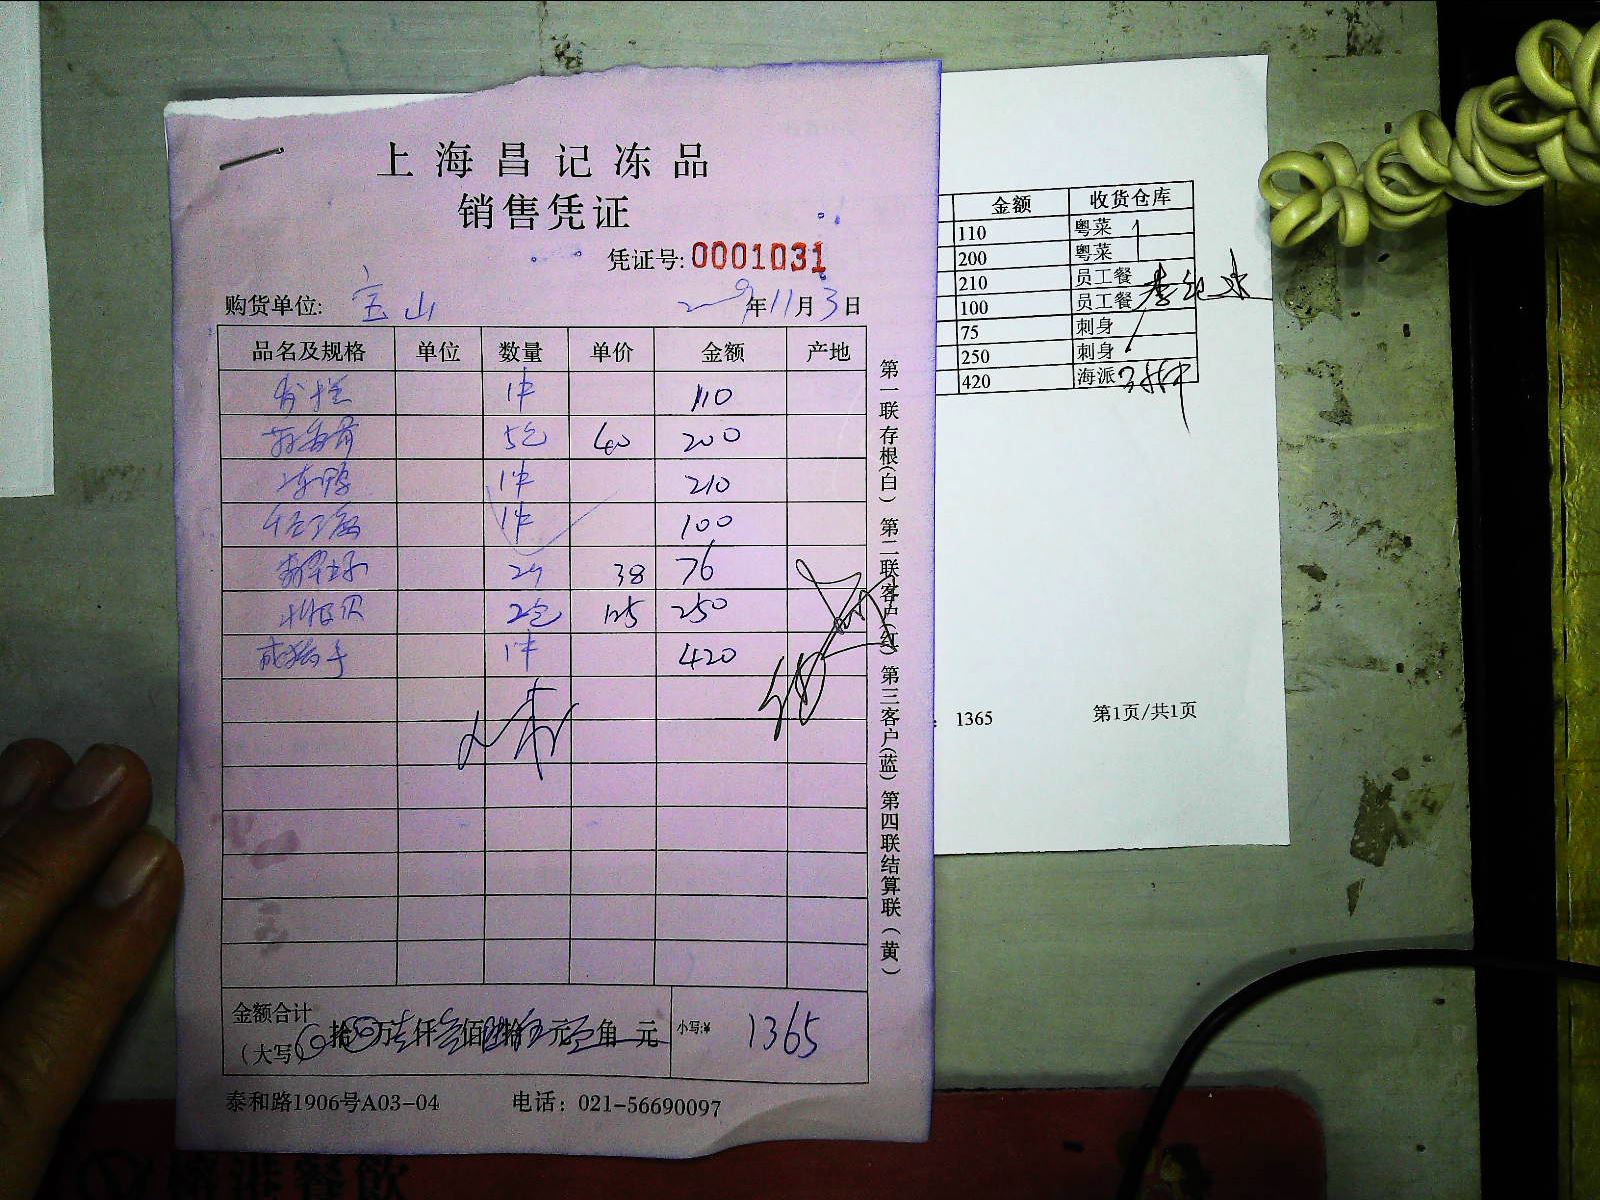 上海昌记冻品
销售凭证
凭证号:0001031
购货单位: 宝山 2009年11月3日
品名及规格 单位 数量 单价 金额 产地
1件 110
5包 40 200
冻鸭 1件 210
1件 100
38 76
2包 125 250
咸猪手 1件 420
金额合计
(大写 拾 万 仟 佰 拾 元 角 元 小写:¥ 1365
泰和路1906号A03-04 电话：021-56690097
第一联存根(白) 第二联客户(红) 第三客户(蓝) 第四联结算联(黄)
金额 收货仓库
110 粤菜
200 粤菜
210 员工餐
100 员工餐
75 刺身
250 刺身
420 海派
: 1365 第1页/共1页